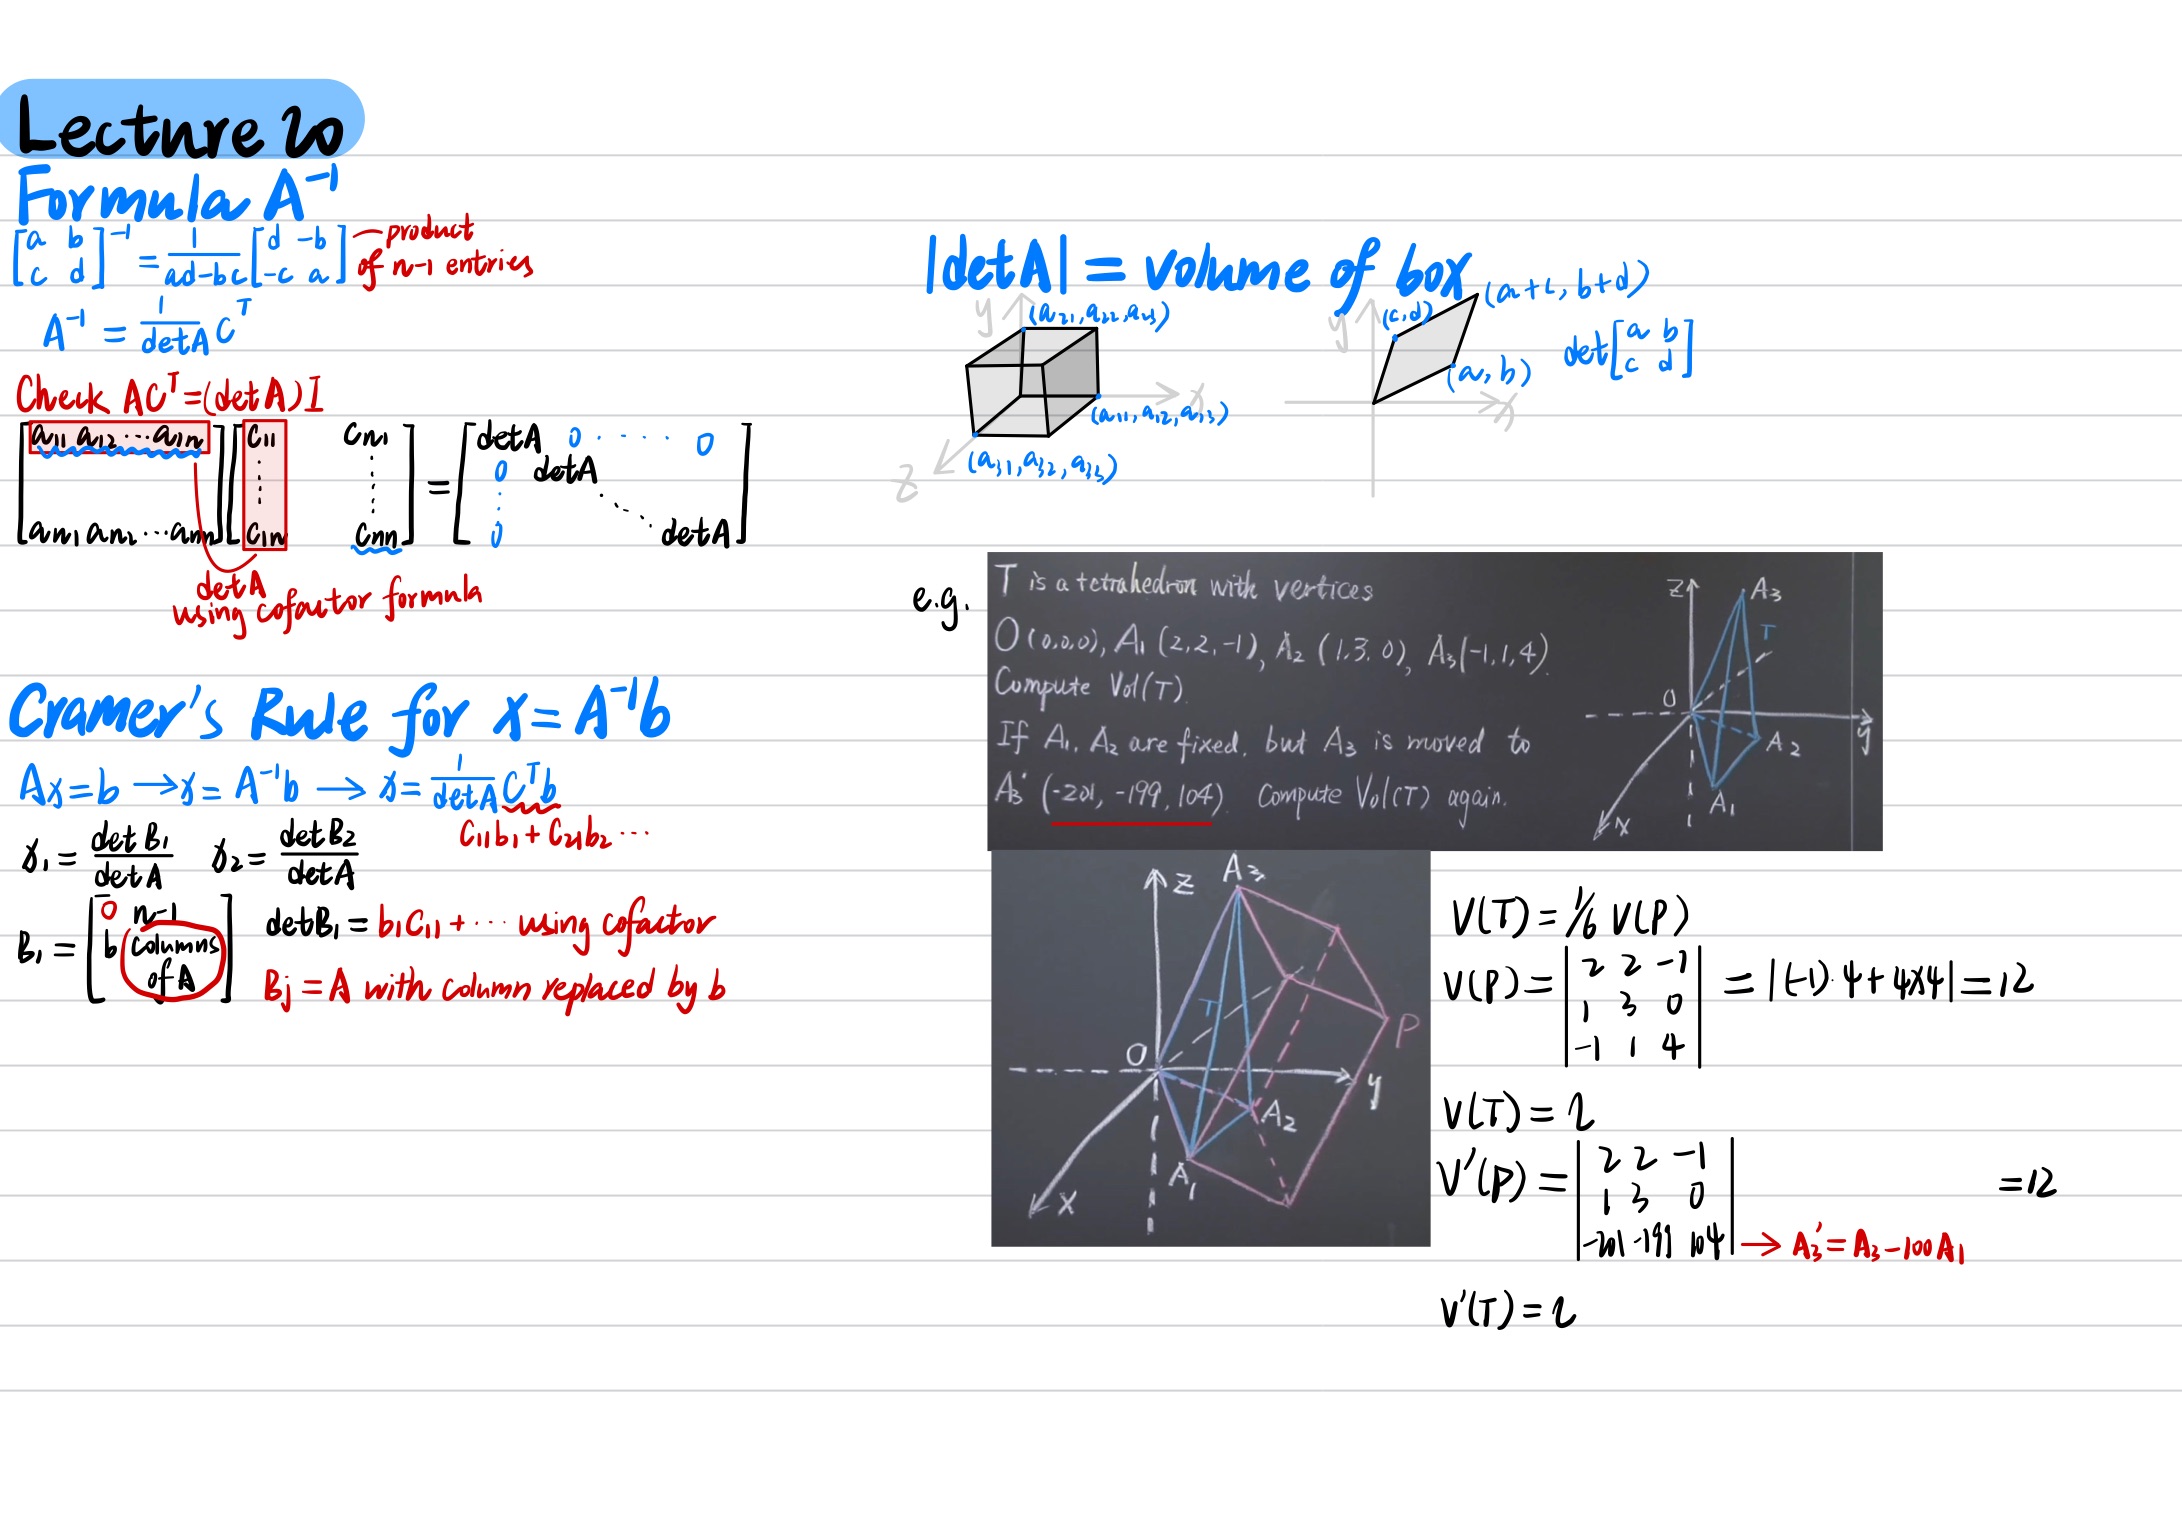 Lecture 20
Formula A⁻¹
[a b; c d]⁻¹ = 1/(ad-bc) [d -b; -c a]
product
of n-1 entries
A⁻¹ = 1/detA Cᵀ
Check ACᵀ=(detA)I
[a₁₁ a₁₂ ⋯ a₁ₙ; aₙ₁ aₙ₂ ⋯ aₙₙ] [C₁₁ Cₙ₁; ⋮ ⋮; C₁ₙ Cₙₙ] = [detA 0 ⋯ 0; 0 detA; ⋮ ⋱; 0 detA]
detA
using cofactor formula
Cramer's Rule for x=A⁻¹b
Ax=b → x=A⁻¹b → x= 1/detA Cᵀb
C₁₁b₁+C₂₁b₂ ⋯
x₁ = detB₁/detA x₂ = detB₂/detA
B₁ = [b n-1 columns of A]
detB₁ = b₁C₁₁+ ⋯ using cofactor
Bj = A with column replaced by b
|detA| = volume of box
y
(a₂₁,a₂₂,a₂₃)
x
(a₁₁,a₁₂,a₁₃)
z
(a₃₁,a₃₂,a₃₃)
y
(c,d)
(a+c, b+d)
(a,b)
x
det[a b; c d]
e.g.
T is a tetrahedron with vertices
O(0,0,0), A₁(2,2,-1), A₂(1,3,0), A₃(-1,1,4).
Compute Vol(T).
If A₁, A₂ are fixed, but A₃ is moved to
A₃'(-201, -199, 104). Compute Vol(T) again.
z
A₃
T
O
A₂
y
A₁
x
A₃
z
T
P
O
y
A₂
A₁
x
V(T) = 1/6 V(P)
V(P) = |2 2 -1; 1 3 0; -1 1 4| = |(-1)·4+4×4| = 12
V(T) = 2
V'(P) = |2 2 -1; 1 3 0; -201 -199 104| = 12
→ A₃' = A₃-100A₁
V'(T) = 2